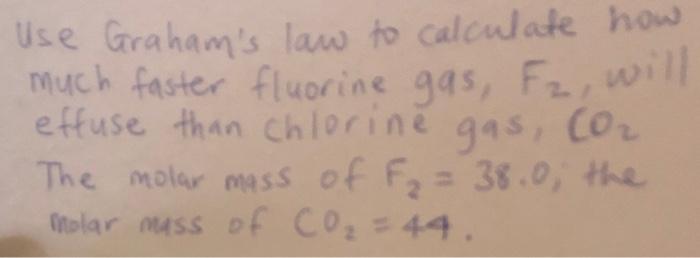 Use Graham's law to calculate how
much faster fluorine gas, F₂, will
effuse than chlorine gas, CO₂
The molar mass of F₂ = 38.0; the
molar mass of CO₂ = 44.